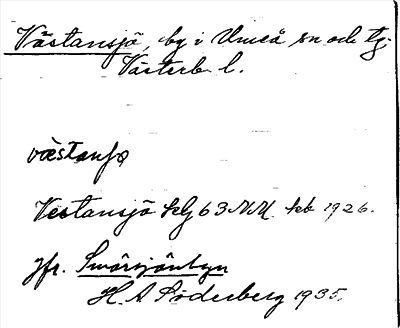 Västansjö, by i Umeå sn och tg.
Västerb. l.
västanʃø
Västansjö 63 NM. feb 1926.
Jfr. Småsjönbyn
H. A Söderberg 1935.